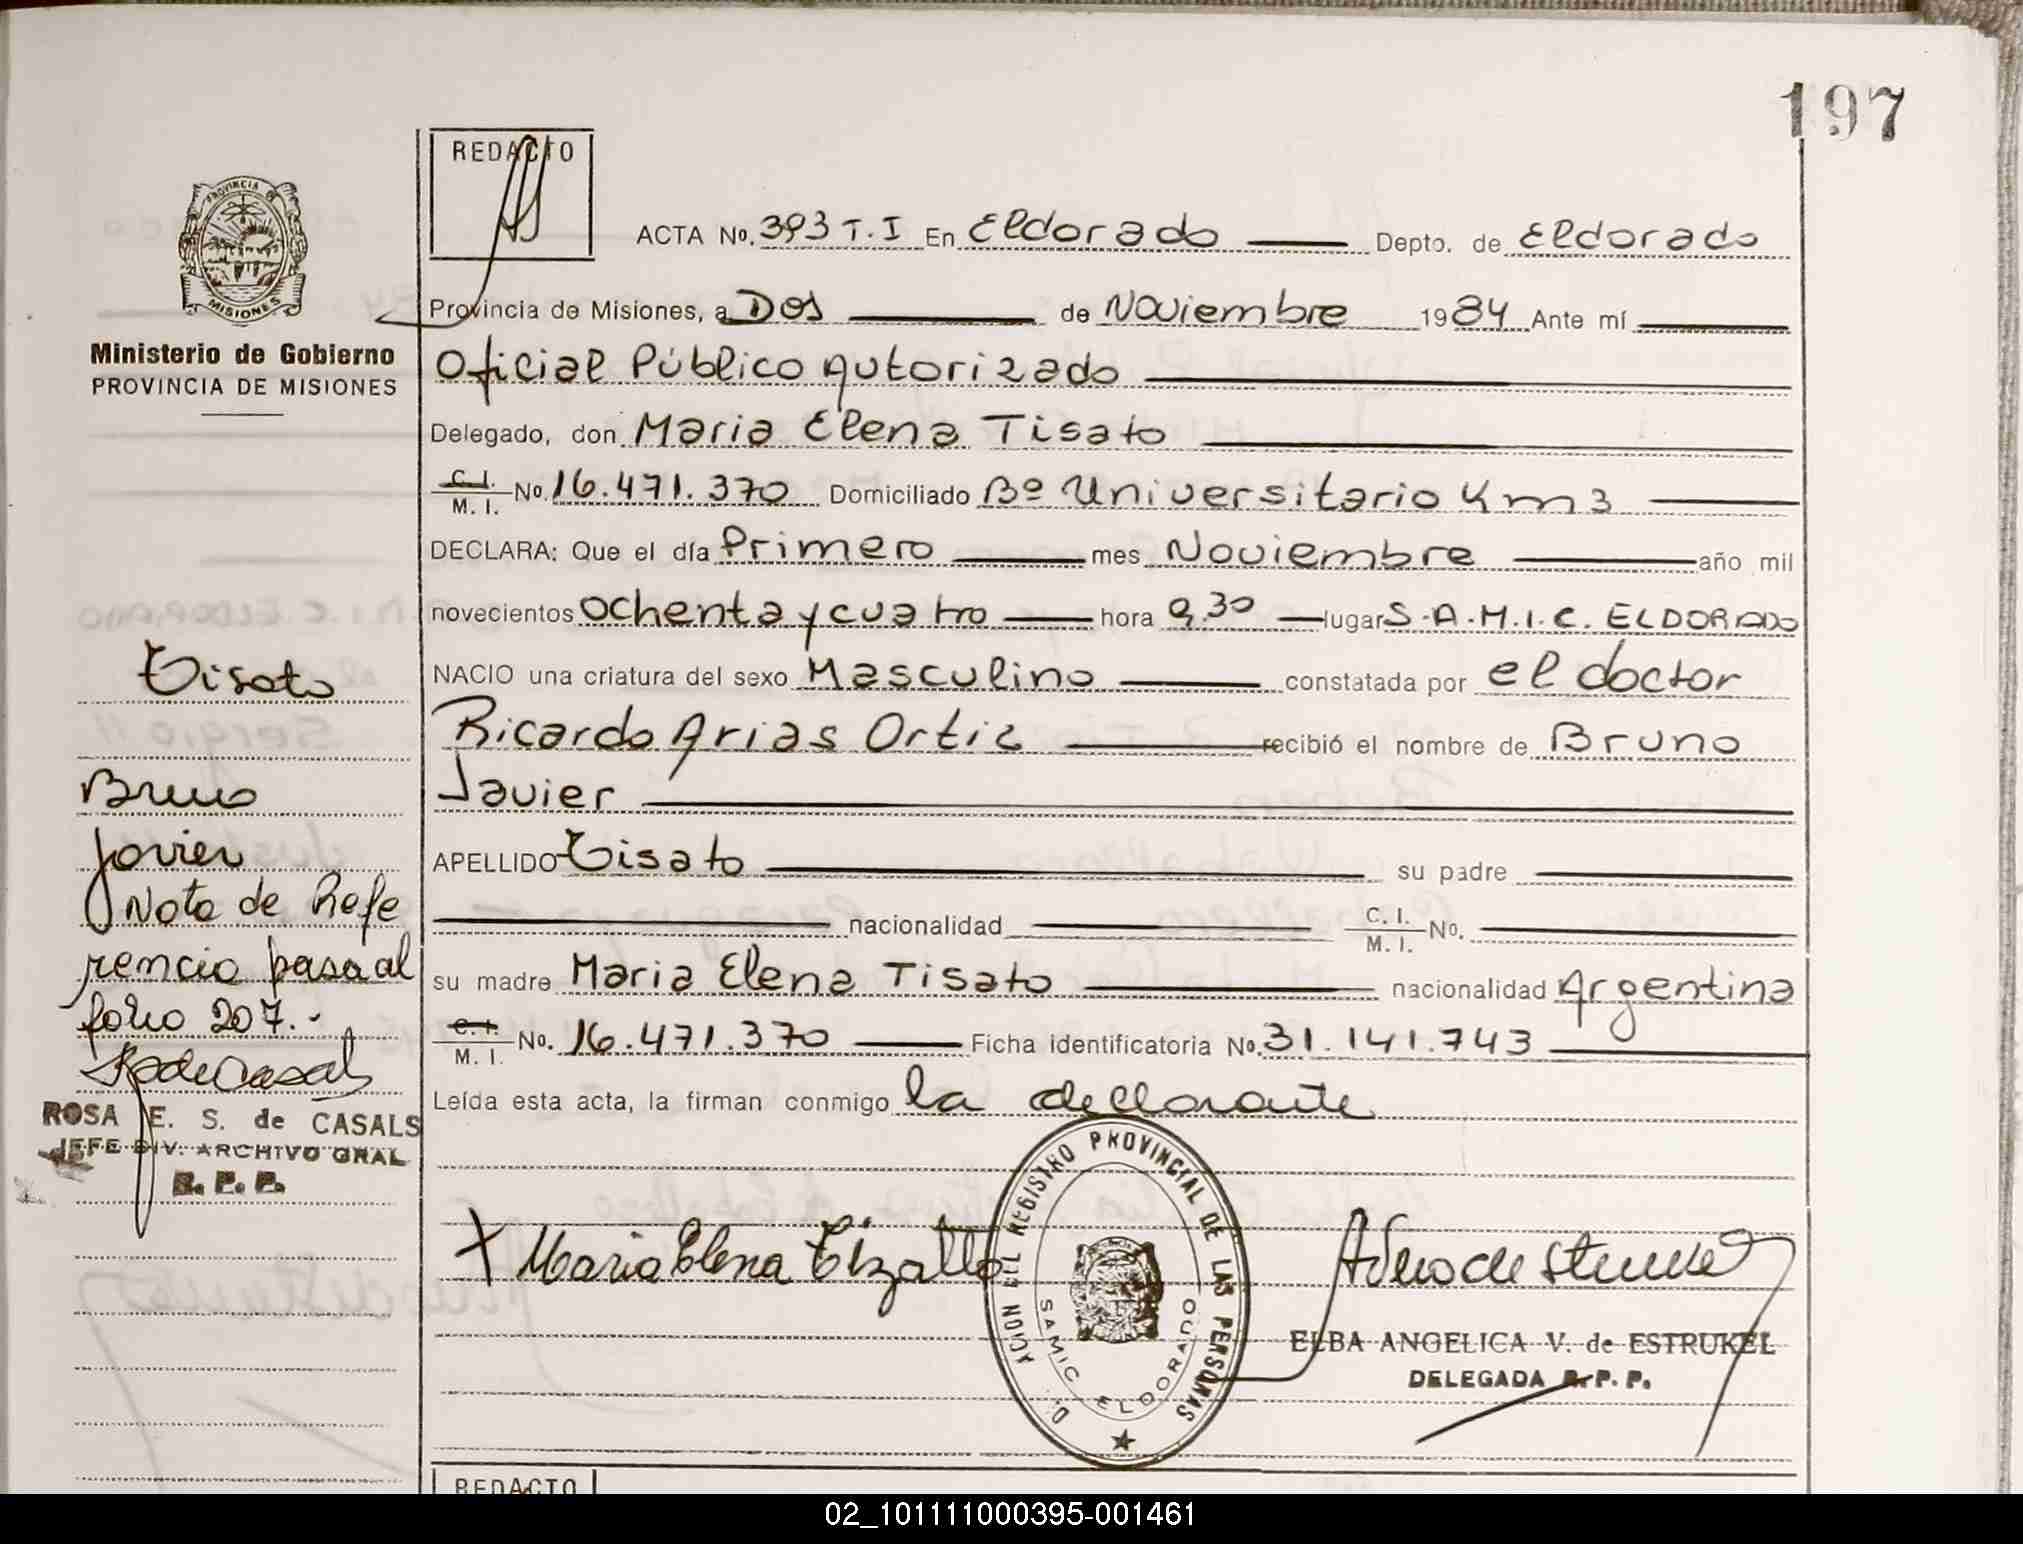 197
REDACTO
ACTA No. 393 T.I En Eldorado Depto. de Eldorado
PROVINCIA DE
MISIONES
Provincia de Misiones, a Dos de Noviembre 1984 Ante mí
Ministerio de Gobierno
PROVINCIA DE MISIONES
Oficial Público Autorizado
Delegado, don Maria Elena Tisato
C. I. M. I. No. 16.471.370 Domiciliado Bº Universitario Km 3
DECLARA: Que el día Primero mes Noviembre año mil
novecientos ochenta y cuatro hora 9.30 lugar S.A.M.I.C. ELDORADO
NACIO una criatura del sexo Masculino constatada por el doctor
Ricardo Arias Ortiz recibió el nombre de Bruno
Javier
APELLIDO Tisato su padre
nacionalidad C. I. M. I. No.
su madre Maria Elena Tisato nacionalidad Argentina
C. I. M. I. No. 16.471.370 Ficha identificatoria No. 31.141.743
Leída esta acta, la firman conmigo la declarante
Tisato
Bruno
Javier
Nota de Refe
rencia pasa al
folio 207.-
ROSA E. S. de CASALS
JEFE DIV. ARCHIVO GRAL
R. P. P.
Maria Elena Tizatto
REGISTRO PROVINCIAL DE LAS PERSONAS
SAMIC ELDORADO
ELBA ANGELICA V. de ESTRUKEL
DELEGADA R. P. P.
REDACTO
02_101111000395-001461